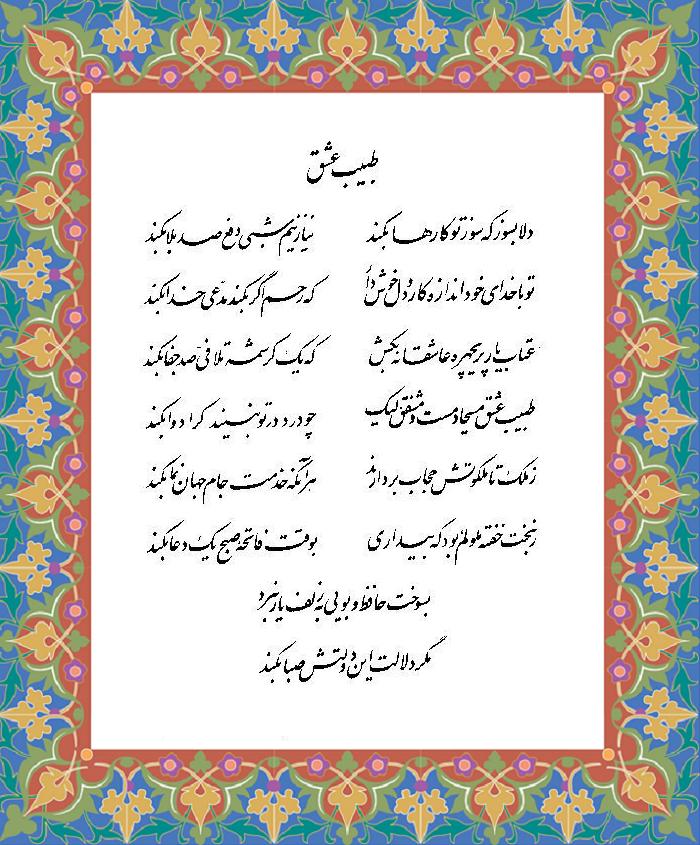 طبیب عشق
دلا بسوز که سوز تو کارها بکند نیاز نیم شبی دفع صد بلا بکند
تو با خدای خود انداز کار و دل خوش دار که رحم اگر نکند مدعی خدا بکند
عتاب یار پریچهره عاشقانه بکش که یک کرشمه تلافی صد جفا بکند
طبیب عشق مسیحا دمست و مشفق لیک چو درد در تو نبیند کرا دوا بکند
ز ملک تا ملکوتش حجاب بردارند هر آنکه خدمت جام جهان نما بکند
ز بخت خفته ملولم بود که بیداری بوقت فاتحه صبح یک دعا بکند
بسوخت حافظ و بویی به زلف یار نبرد
مگر دلالت این دولتش صبا بکند